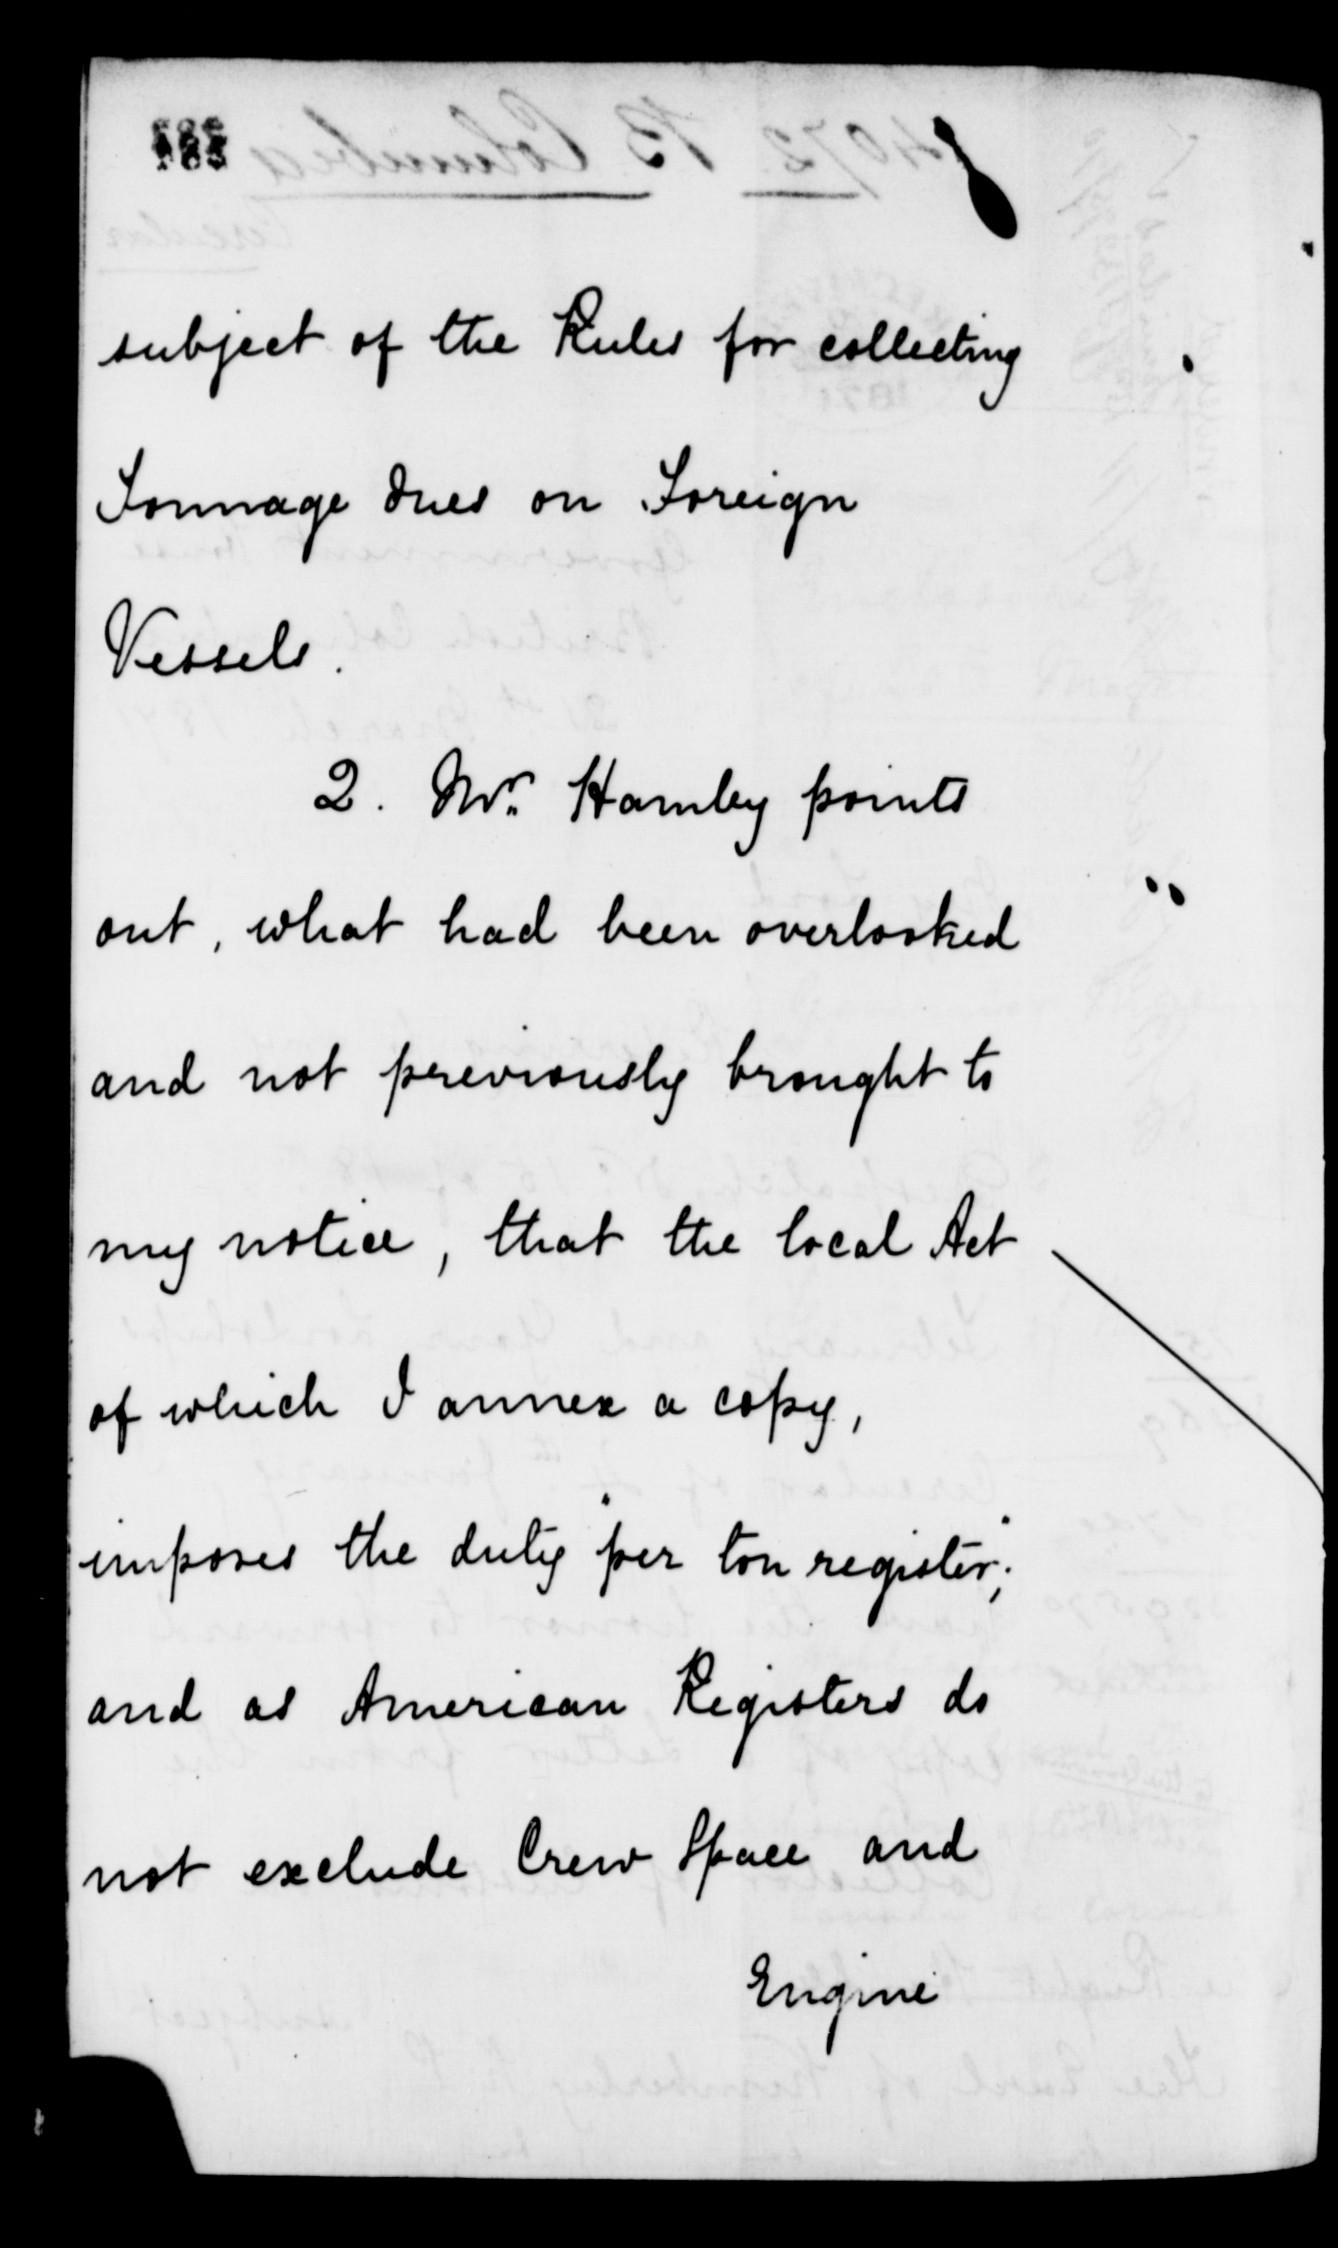 subject of the Rules for collecting
Tonnage dues on Foreign
Vessels.
2. Mr. Hamley points
out, what had been overlooked
and not previously brought to
my notice, that the local Act
of which I annex a copy,
imposes the duty "per ton register;"
and as American Registers do
not exclude Crew Space and
Engine